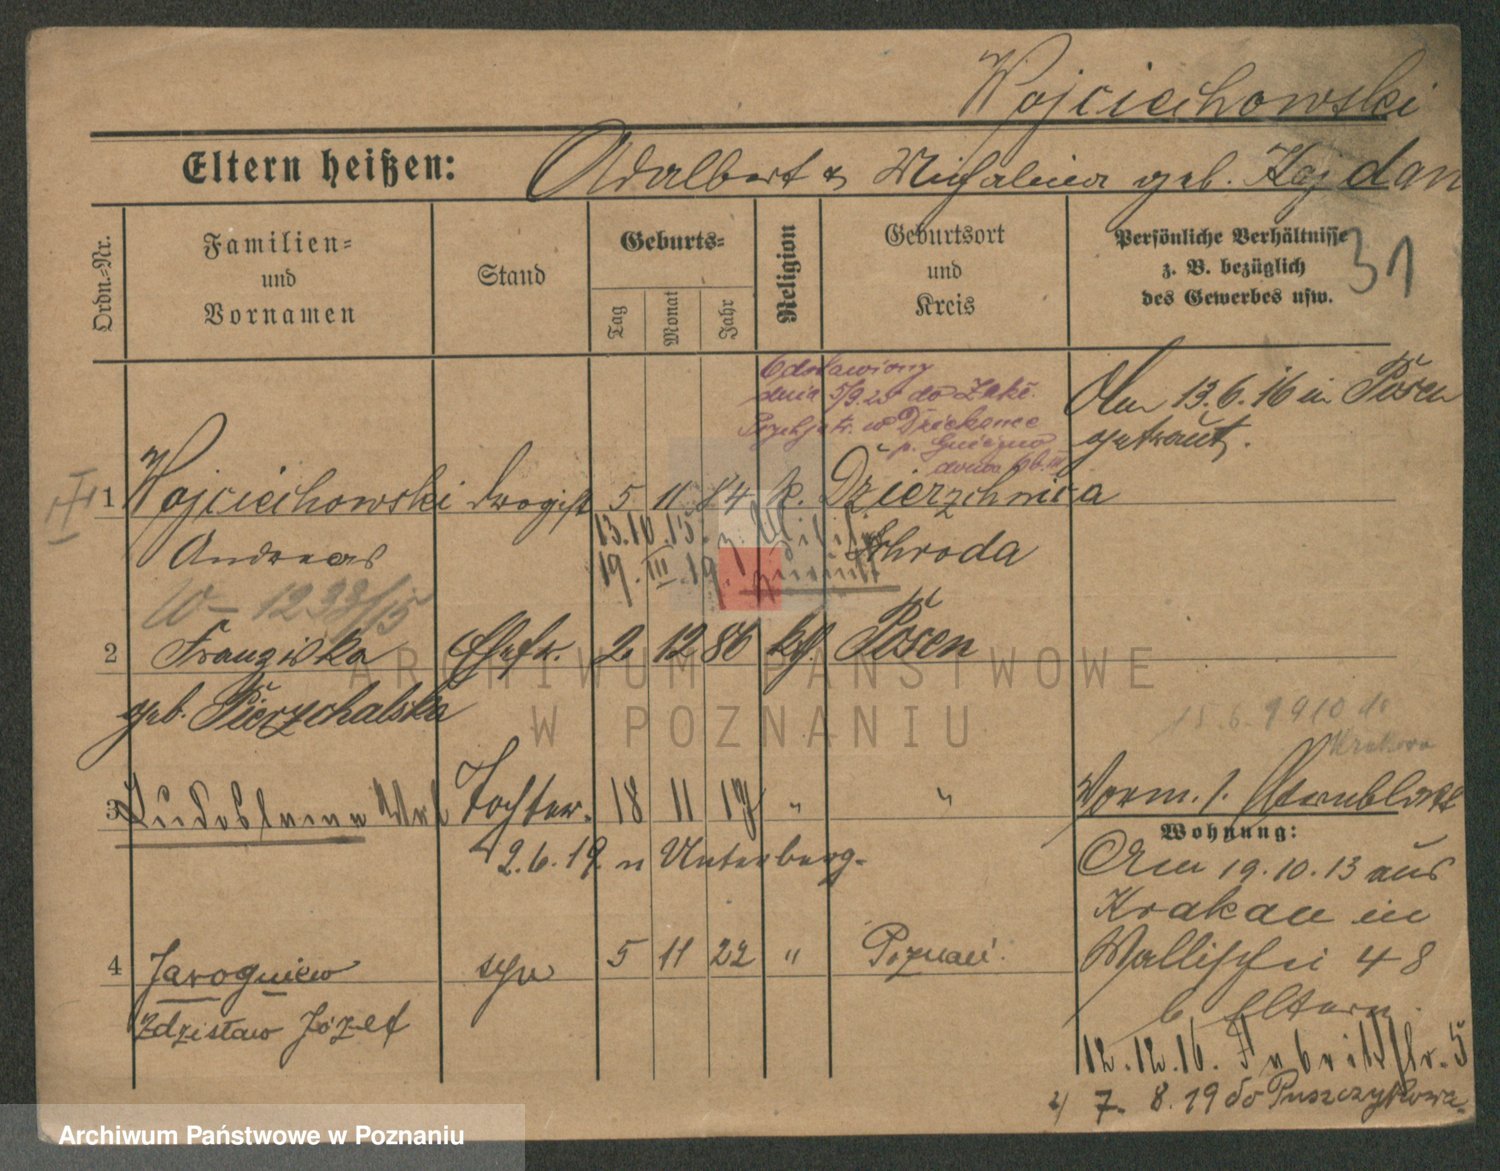 Wojciechowski
Eltern heißen: Adalbert & Michalina geb. Kajdan
Ordn.-Nr.
Familien-
und
Vornamen
Stand
Geburts-
Tag
Monat
Jahr
Religion
Geburtsort
und
Kreis
Persönliche Verhältnisse
z. B. bezüglich
des Gewerbes usw.
31
Odstawiony
dnia 5/9.25 do Zakł.
Psychjatr. w Dziekance
p. Gniezno
Am 13.6.16 in Posen
getraut.
III
1 Wojciechowski Drogist 5 11 84 k. Dzierzchnica
Andreas
Schroda
13.10.15. z. Militär
19. III. 19. zurück
W - 1233/15
2 Franziska Ehefr. 2 12 86 kath. Posen
geb. Pierzchalska
15.6.1910 do
Krakowa
3 Tochter. 18 11 17 " "
2.6.19 n Unterberg.
Vorm. s.
Wohnung:
Am 19.10.13 aus
Krakau in
Wallischei 48
b. Eltern.
12.12.16. Fabrikstr. 5
4 Jarogniew syn 5 11 22 " Poznań.
Zdzisław Józef
7. 8. 19 do Puszczykowa
ARCHIWUM PAŃSTWOWE
W POZNANIU
Archiwum Państwowe w Poznaniu